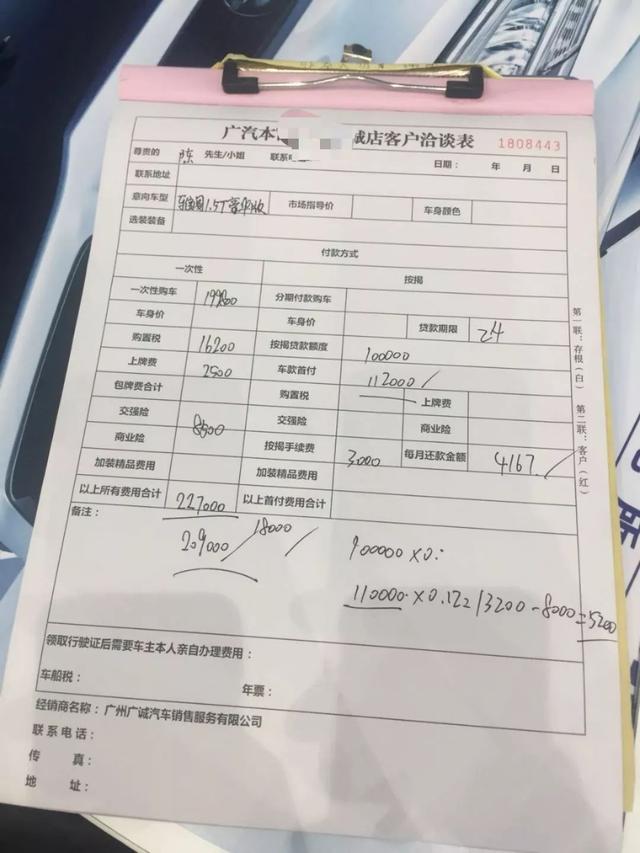 广汽本 诚店客户洽谈表 1808443
尊贵的 陈 先生/小姐 联系电 日期： 年 月 日
联系地址
意向车型 1.5T豪华版 市场指导价 车身颜色
选装装备
付款方式
一次性 按揭
一次性购车 199800 分期付款购车
车身价 车身价 贷款期限 24
购置税 16200 按揭贷款额度 100000
上牌费 2500 车款首付 112000
包牌费合计 购置税 上牌费
交强险 8500 交强险 商业险
商业险 按揭手续费 3000 每月还款金额 4167
加装精品费用 加装精品费用
以上所有费用合计 227000 以上首付费用合计
备注：
209000 / 18000 /
100000 ×0.
110000 × 0.12 = 13200 - 8000 = 5200
领取行驶证后需要车主本人亲自办理费用：
车船税： 年票：
经销商名称：广州广诚汽车销售服务有限公司
联系电话：
传 真：
地 址：
第一联：存根（白） 第二联：客户（红）